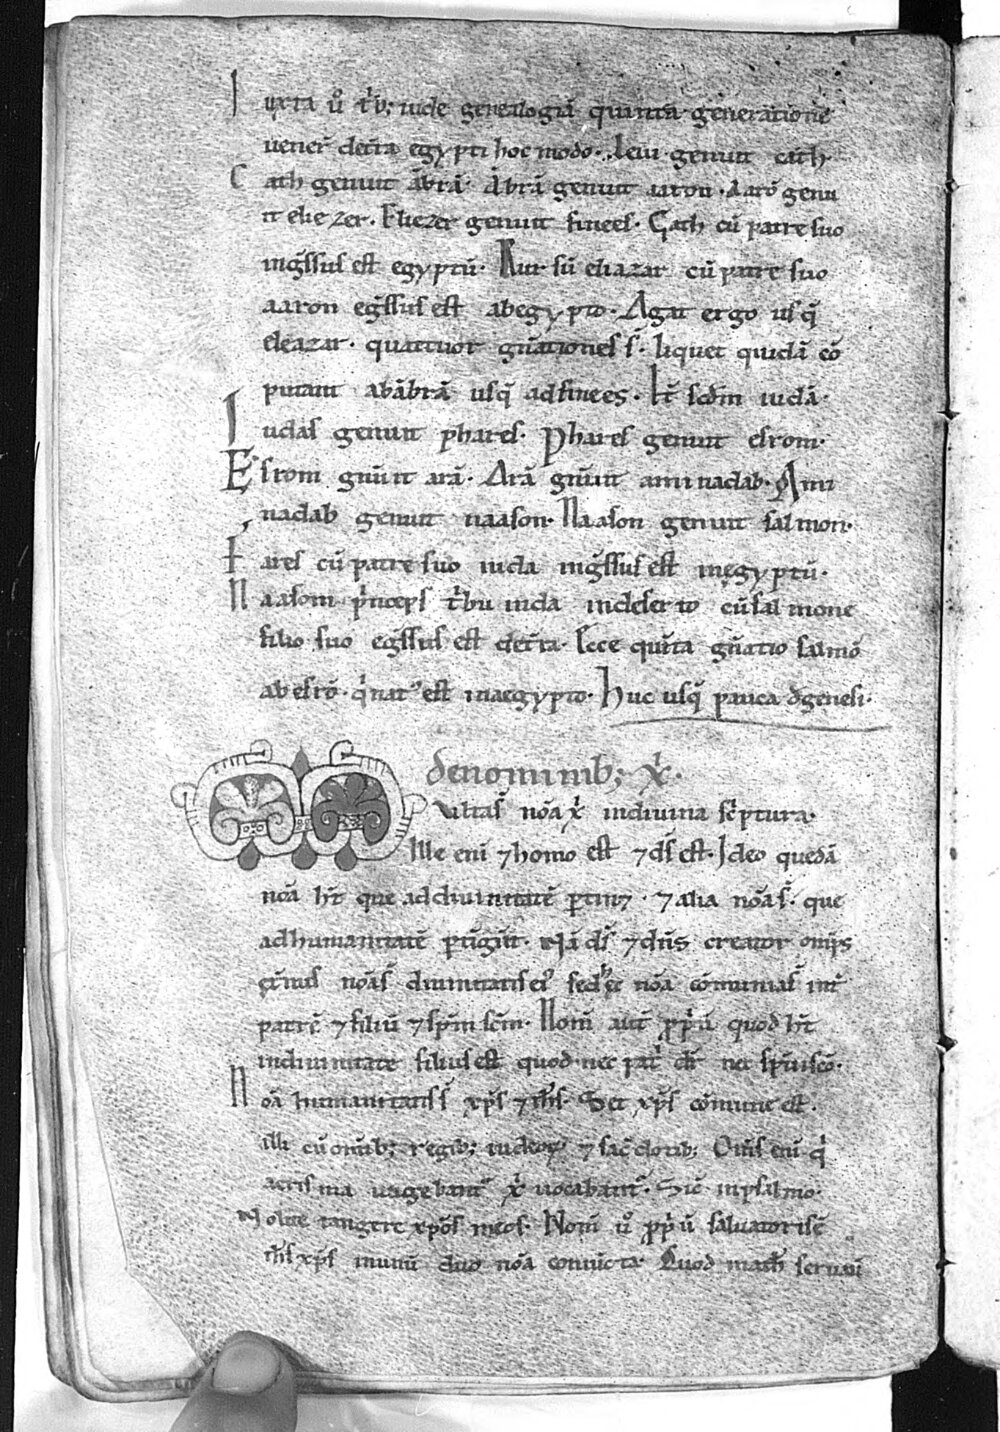 Iuxta u̇ tͥb; iude genealogiā quinta generatione
uener̄ de tr̄a egypti hoc modo. Leui genuit cath.
Cath genuit ābrā. Ābrā genuit aaron. Aarō genu
it eliezer. Eliezer genuit finees. Cath cū patre suo
ingͣssus est egyptū. Rur sū eliazar cū patre suo
aaron egͣssus est ab egypto. Agat ergo usq̄
eleazar. quattuor gn̄ationes s̄. liquet quidā cō
putant ab ābrā usq̄ ad finees. It̄ scd̄m iudā.
Iudas genuit phares. Phares genuit esrom.
Esrom gn̄uit arā. Arā gn̄uit aminadab. Ami
nadab genuit naason. Naason genuit salmon.
Fares cū patre suo iuda ingͣssus est in ęgyptū.
Naason pͥnceps tͥbu iuda in deserto cū salmone
filio suo egͣssus est de tr̄a. Ecce quīta gn̄atio salmō
ab esrō. qͥ natꝰ est in aegypto. Huc usq̄ pauca d̄ genesi.
de nominib; xͥ.
Multa s̄ nōa xͥ in diuina scͥptura.
Ille eni̅ ⁊ homo est ⁊ ds̄ est. Ideo quedā
nōa ht̄ que ad diuinitatē ꝑtin⁊. ⁊ alia nōa s̄. que
ad humanitatē ꝑtin̄gūt. Nā ds̄ ⁊ dn̄s creator om̄ps
ęt̄nus nōa s̄ diuinitatis eiꝰ sed hęc nōa cōmunia s̄ int̄
patrē ⁊ filiū ⁊ sp̄m sc̄m. Nom̄ aut̄ ꝓpͥū quod ht̄
in diuinitate filius est quod nec pat̄ dr̄ nec sp̄ui sc̄o.
Nōa humanitatis s̄ xp̄s ⁊ ih̄s. Set xp̄s cōmune est.
illi cū om̄ib; regib; iudeoꝝ ⁊ sac̄dotib; Om̄s eni̅ qͥ
acrisma ungebantᷣ xͥ uocabantᷣ. Sic̄ in psalmo.
Nolite tangere xp̄os meos. Nom̄ u̇ ꝓpͥū saluatoris ē
ih̄s xp̄s in unū duo nōa coniūcta. Quod math̄ seruaui